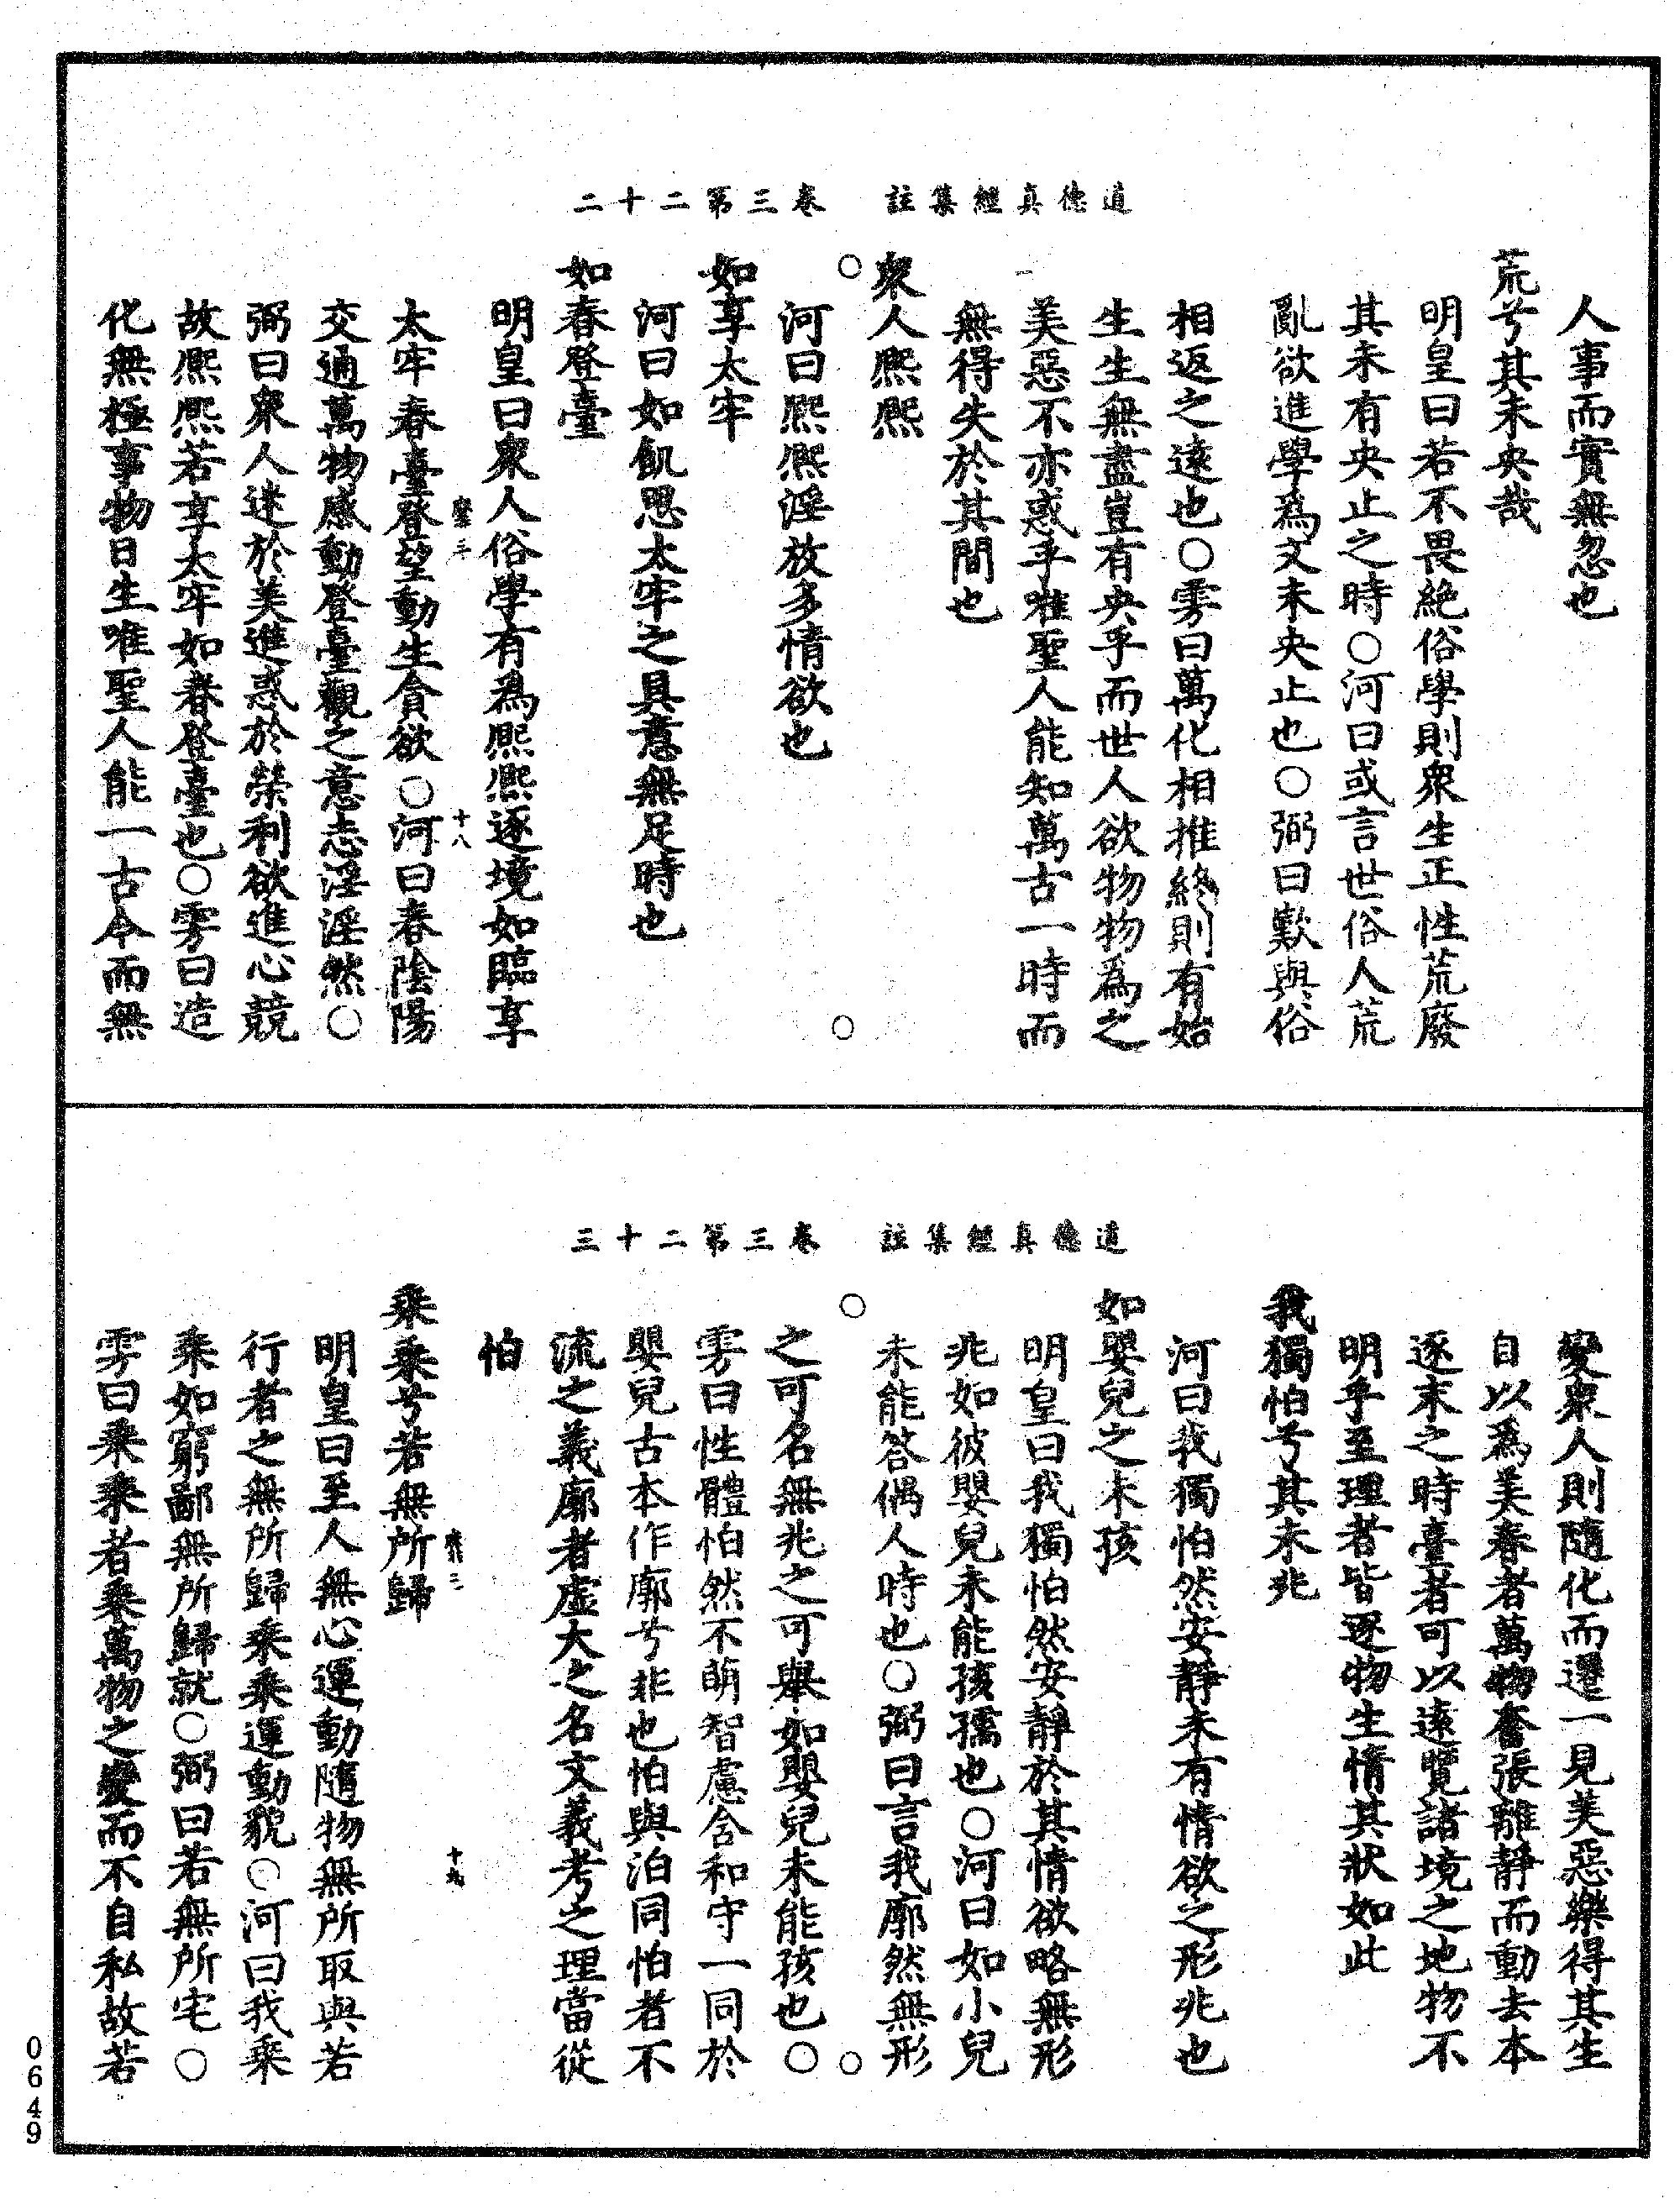 道德真經集註　卷三第二十二
人事而實無忽也
荒兮其未央哉
明皇曰若不畏絕俗學則衆生正性荒廢
其未有央止之時○河曰或言世俗人荒
亂欲進學爲文未央止也○弼曰歎與俗
相返之遠也○雱曰萬化相推終則有始
生生無盡豈有央乎而世人欲物物爲之
美惡不亦惑乎唯聖人能知萬古一時而
無得失於其間也
衆人熈熈
河曰熈熈淫放多情欲也
如享太牢
河曰如飢思太牢之具意無足時也
如春登臺
明皇曰衆人俗學有爲熈熈逐境如臨享
十八
太牢春臺登望動生貪欲○河曰春陰陽
交通萬物感動登臺觀之意志淫淫然○
弼曰衆人迷於美進惑於榮利欲進心競
故熈熈若享太牢如春登臺也○雱曰造
化無極事物日生唯聖人能一古今而無
道德真經集註　卷三第二十三
變衆人則隨化而遷一見美惡樂得其生
自以爲美春者萬物奮張離靜而動去本
逐末之時臺者可以遠覽諸境之地物不
明乎至理者皆逐物生情其狀如此
我獨怕兮其未兆
河曰我獨怕然安靜未有情欲之形兆也
如嬰兒之未孩
明皇曰我獨怕然安靜於其情欲略無形
兆如彼嬰兒未能孩孺也○河曰如小兒
未能答偶人時也○弼曰言我廓然無形
之可名無兆之可舉如嬰兒未能孩也○
雱曰性體怕然不萌智慮含和守一同於
嬰兒古本作廓兮非也怕與泊同怕者不
流之義廓者虛大之名文義考之理當從
怕
乘乘兮若無所歸
十九
明皇曰至人無心運動隨物無所取與若
行者之無所歸乘乘運動貌○河曰我乘
乘如窮鄙無所歸就○弼曰若無所宅○
雱曰乘乘者乘萬物之變而不自私故若
0649